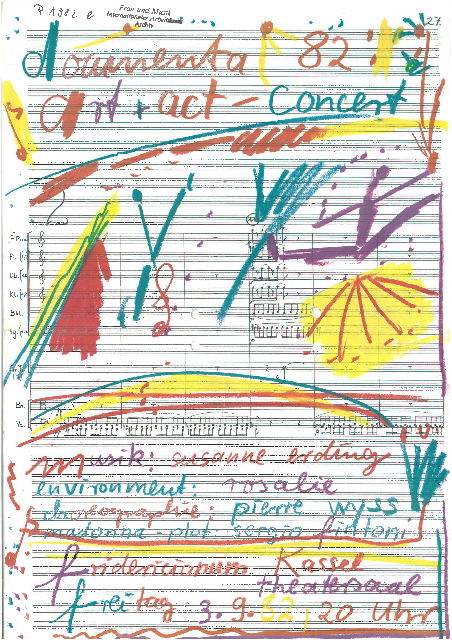 Frau und Musik
Internationaler Arbeitskreis
Archiv
27
documenta 82
art + act - Concert
musik: susanne erding
environment: rosalie
choreographie: pierre wyss
madonna-plot sergio
fridericianum Kassel
theatersaal
freitag 3.9.82, 20 Uhr